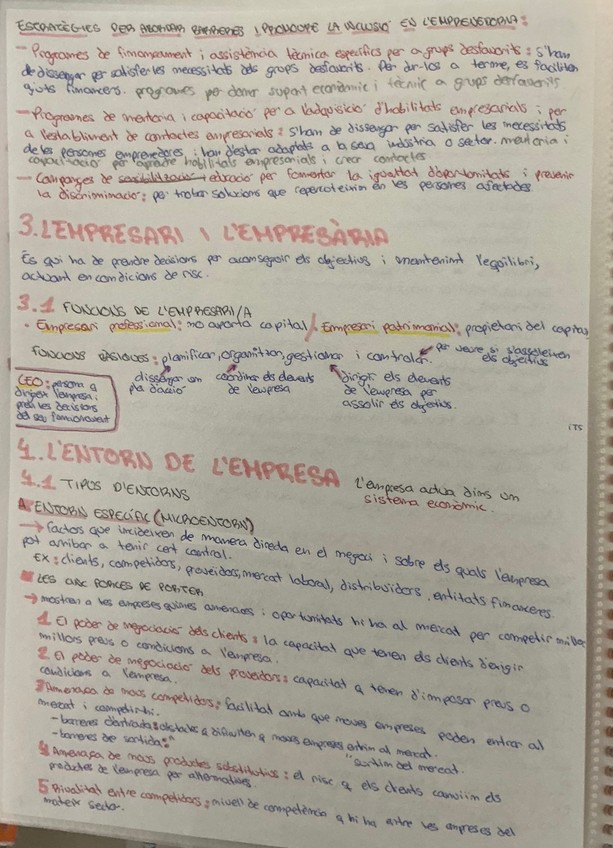 ESTRATÈGIES PER ABORDAR BARRERES I PROMOURE LA INCLUSIÓ EN L'EMPRENEDORIA:
- Programes de finançament i assistència tècnica específics per a grups desfavorits: s'han
de dissenyar per satisfer les necessitats dels grups desfavorits. Per dur-los a terme, es faciliten
ajuts financers. programes per donar suport econòmic i tècnic a grups desfavorits
- Programes de mentoria i capacitació per a l'adquisició d'habilitats empresarials i per
a l'establiment de contactes empresarials: S'han de dissenyar per satisfer les necessitats
de les persones emprenedores i han d'estar adaptats a la seva indústria o sector. mentoria i
capacitació per aprendre habilitats empresarials i crear contactes
- Campanyes de sensibilització i educació per fomentar la igualtat d'oportunitats i prevenir
la discriminació: per trobar solucions que repercuteixin en les persones afectades
3. L'EMPRESARI I L'EMPRESÀRIA
És qui ha de prendre decisions per aconseguir els objectius i mantenint l'equilibri,
actuant en condicions de risc.
3.1 FUNCIONS DE L'EMPRESARI/A
· Empresari professional: no aporta capital / Empresari patrimonial: propietari del capital
FUNCIONS BÀSIQUES: planificar, organitzar, gestionar i controlar.
per veure si s'assoleixen
els objectius
dissenyar un
pla d'acció
coordinar els elements
de l'empresa
dirigir els elements
de l'empresa per
assolir els objectius.
CEO: persona q
dirigeix l'empresa,
pren les decisions
del seu funcionament
ITS
4. L'ENTORN DE L'EMPRESA
4.1 TIPUS D'ENTORNS
L'empresa actua dins un
sistema econòmic.
A. ENTORN ESPECÍFIC (MICROENTORN)
→ factors que incideixen de manera directa en el negoci i sobre els quals l'empresa
pot arribar a tenir cert control.
EX: clients, competidors, proveïdors, mercat laboral, distribuïdors, entitats financeres.
LES CINC FORCES DE PORTER
→ mostren a les empreses quines amenaces i oportunitats hi ha al mercat per competir millor
1 El poder de negociació dels clients: la capacitat que tenen els clients d'exigir
millors preus o condicions a l'empresa.
2 El poder de negociació dels proveïdors: capacitat q tenen d'imposar preus o
condicions a l'empresa.
3 Amenaça de nous competidors: facilitat amb que noves empreses poden entrar al
mercat i competir-hi.
- barreres d'entrada: obstacles q dificulten q noves empreses entrin al mercat.
- barreres de sortida: " " surtin del mercat.
4 Amenaça de nous productes substitutius: el risc q els clients canviïn els
productes de l'empresa per alternatives.
5 Rivalitat entre competidors: nivell de competència q hi ha entre les empreses del
mateix sector.